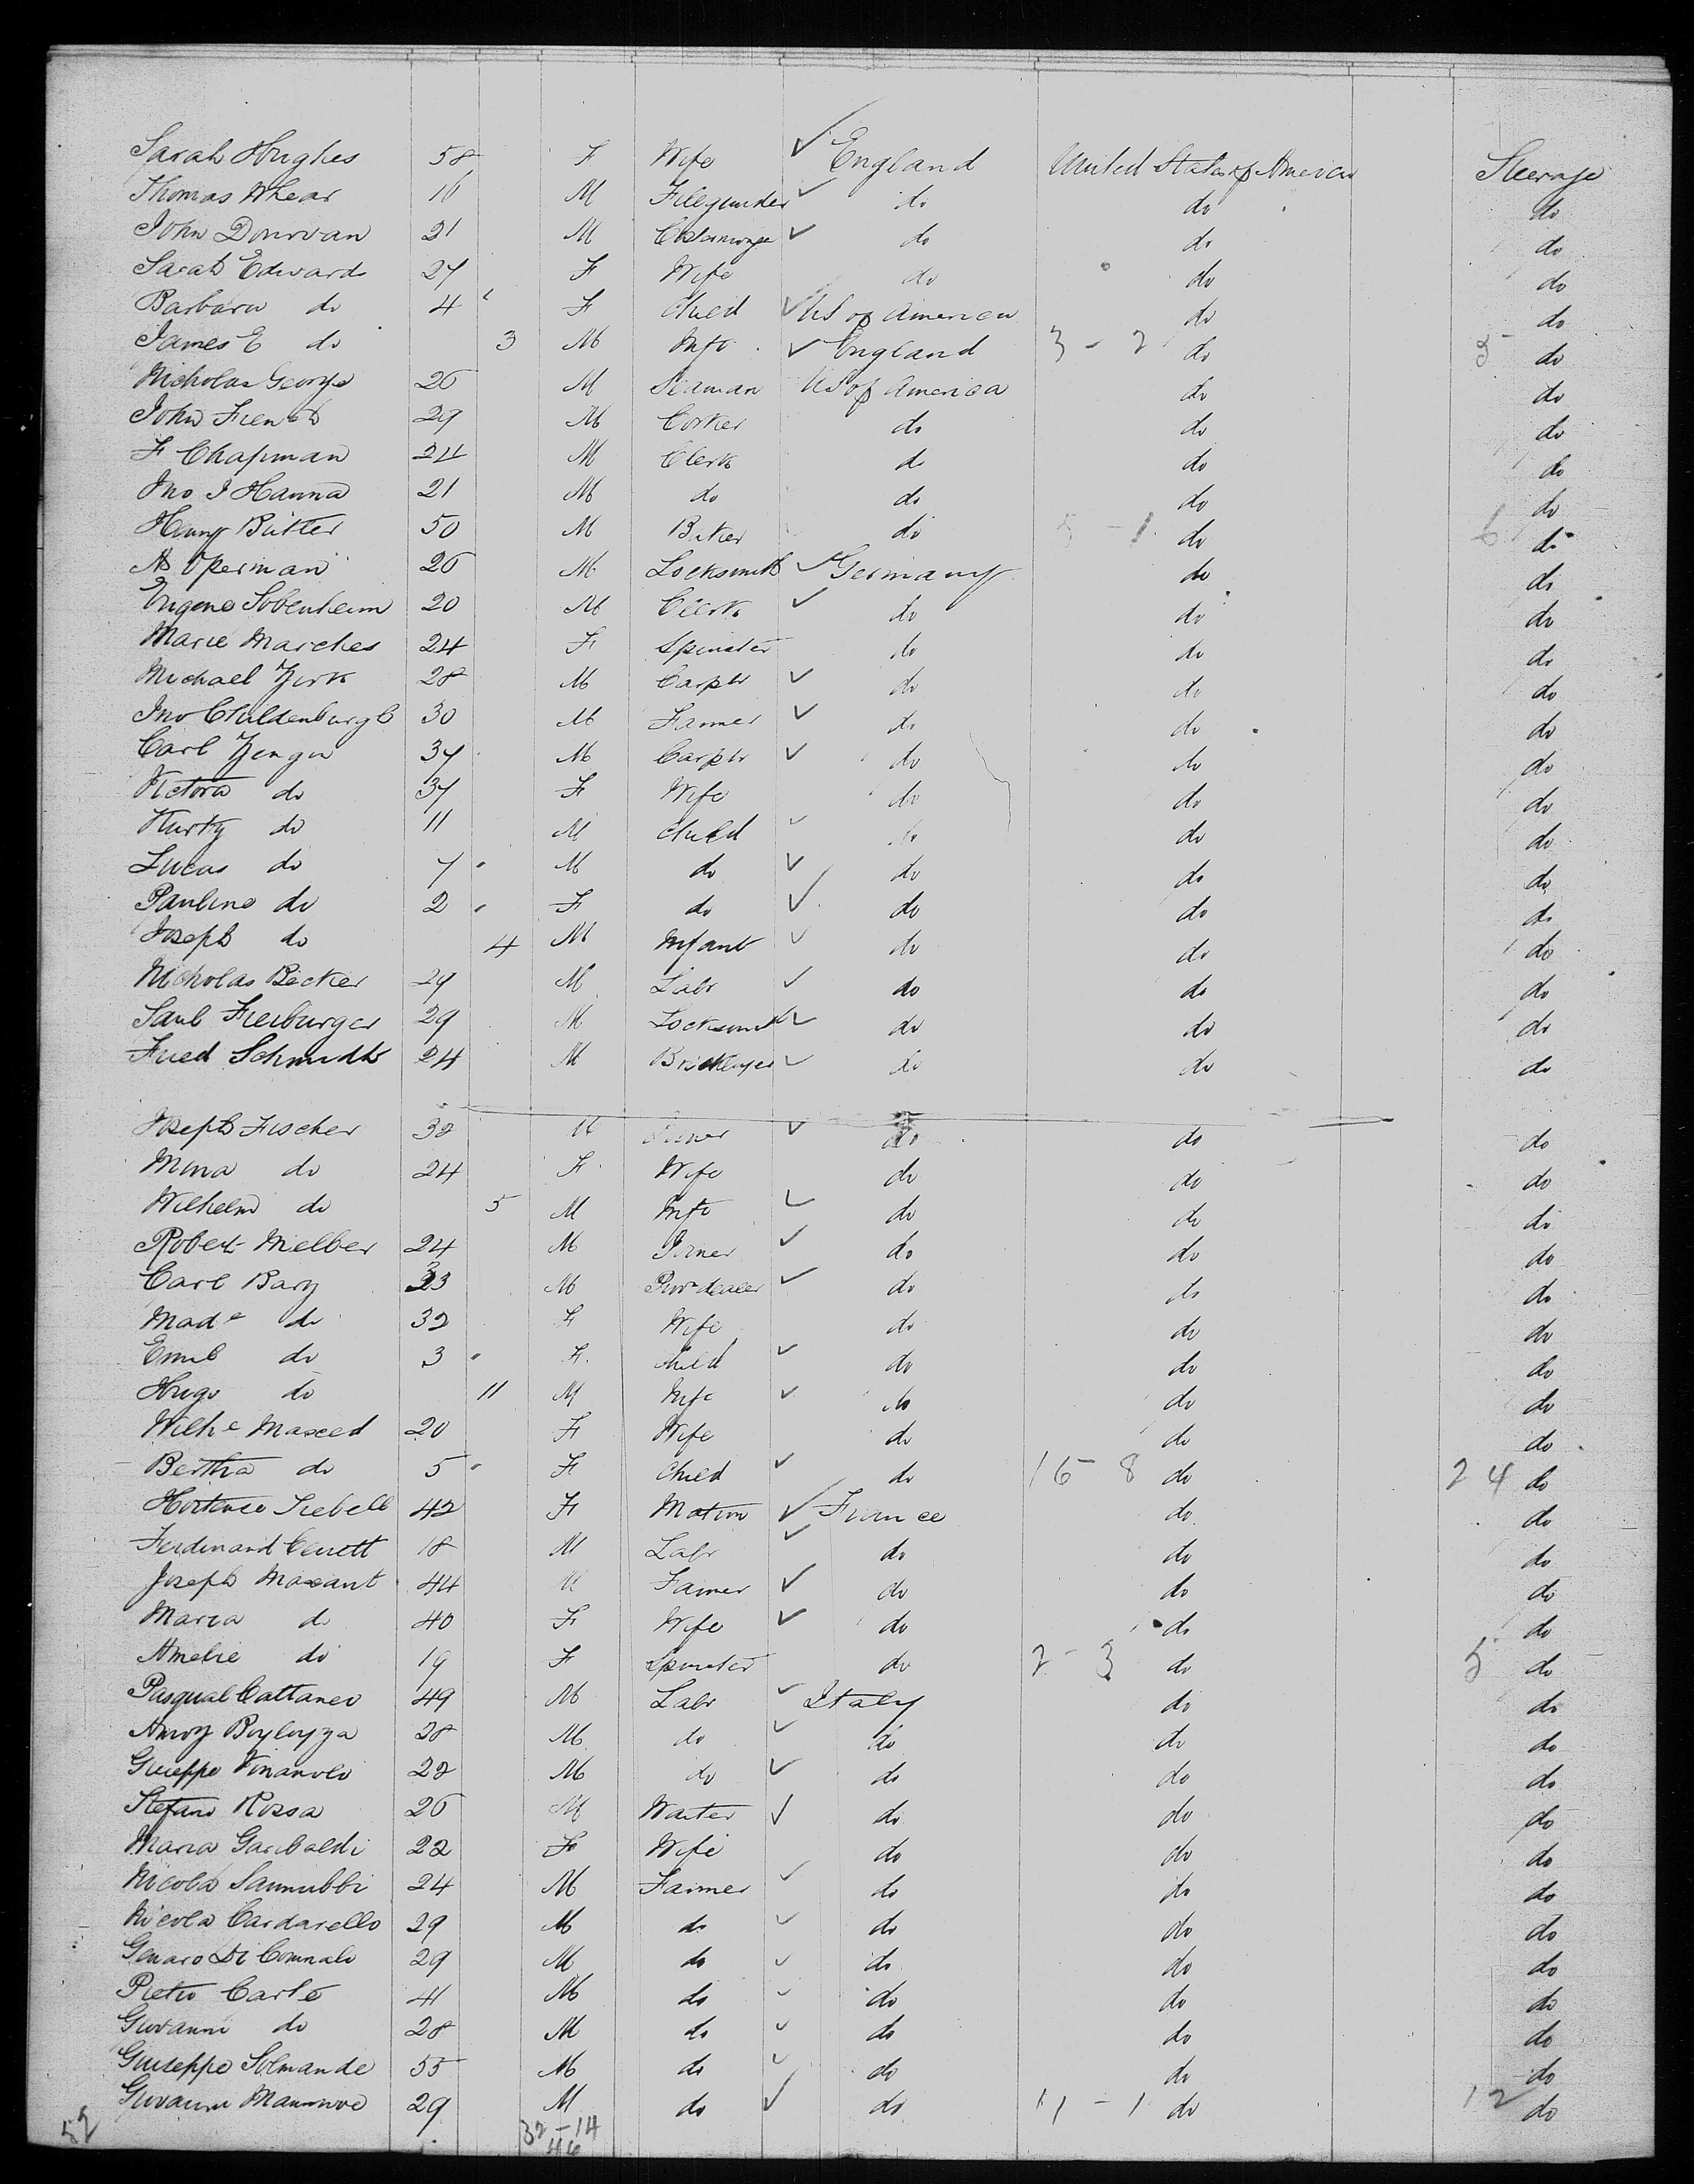 Sarah Hughes 58 F Wife ✓ England United States of America Steerage
Thomas Whear 16 M ✓ do do do
John Donovan 21 M ✓ do do do
Sarah Edwards 27 F Wife do do do
Barbara do 4 F Child ✓ US of America do do
James E do 3 M Inft ✓ England 3 - 2 do 5 do
Nicholas George 26 M Seaman US of America do do
John French 29 M Corker do do do
F Chapman 24 M Clerk do do do
Jno J Hanna 21 M do do do do
Henry Butler 50 M Baker do 5 - 1 do 6 do
26 M Locksmith ✓ Germany do do
Eugene Sobenheim 20 M Clerk ✓ do do do
Marie Marches 24 F Spinster do do do
Michael 28 M Carptr ✓ do do do
Jno Childenburgh 30 M Farmer ✓ do do do
Carl Zenger 37 M Carptr ✓ do do do
Victora do 37 F Wife do do do
do 11 M Child ✓ do do do
Lucas do 7 M do ✓ do do do
Pauline do 2 F do ✓ do do do
Joseph do 4 M Infant ✓ do do do
Nicholas Becker 29 M Labr ✓ do do do
Freiburger 29 M Locksmith ✓ do do do
Fried Schmidt 24 M Bricklayer ✓ do do do
Joseph Fischer 32 M ✓ do do do
Mina do 24 F Wife do do do
Wilhelm do 5 M Inft ✓ do do do
Robert Mielber 24 M ✓ do do do
Carl Bary 33 M ✓ do do do
Made do 32 F Wife do do do
Emil do 3 F Child ✓ do do do
Hugo do 11 M Inft ✓ do do do
Wilhe Maxeed 20 F Wife do do do
Bertha do 5 F Child ✓ do 16 - 8 do 24 do
Hortense 42 F Matron ✓ France do do
Ferdinand 18 M Labr ✓ do do do
Joseph Maxant 44 M Farmer ✓ do do do
Maria do 40 F Wife ✓ do do do
Amelie do 19 F Spinster do 2 - 3 do 5 do
Pasqual Cattaneo 49 M Labr ✓ Italy do do
28 M do ✓ do do do
Giuseppe 22 M do ✓ do do do
Stefano Rossa 26 M Waiter ✓ do do do
Maria Garibaldi 22 F Wife do do do
Nicola 24 M Farmer ✓ do do do
Nicola Cardarello 29 M do ✓ do do do
Genaro Di 29 M do ✓ do do do
Pietro Carlo 41 M do ✓ do do do
Giovanni do 28 M do ✓ do do do
Giuseppe Solmande 55 M do ✓ do do do
Giovanni 29 M do ✓ do 11 - 1 do 12 do
52 32 - 14
46